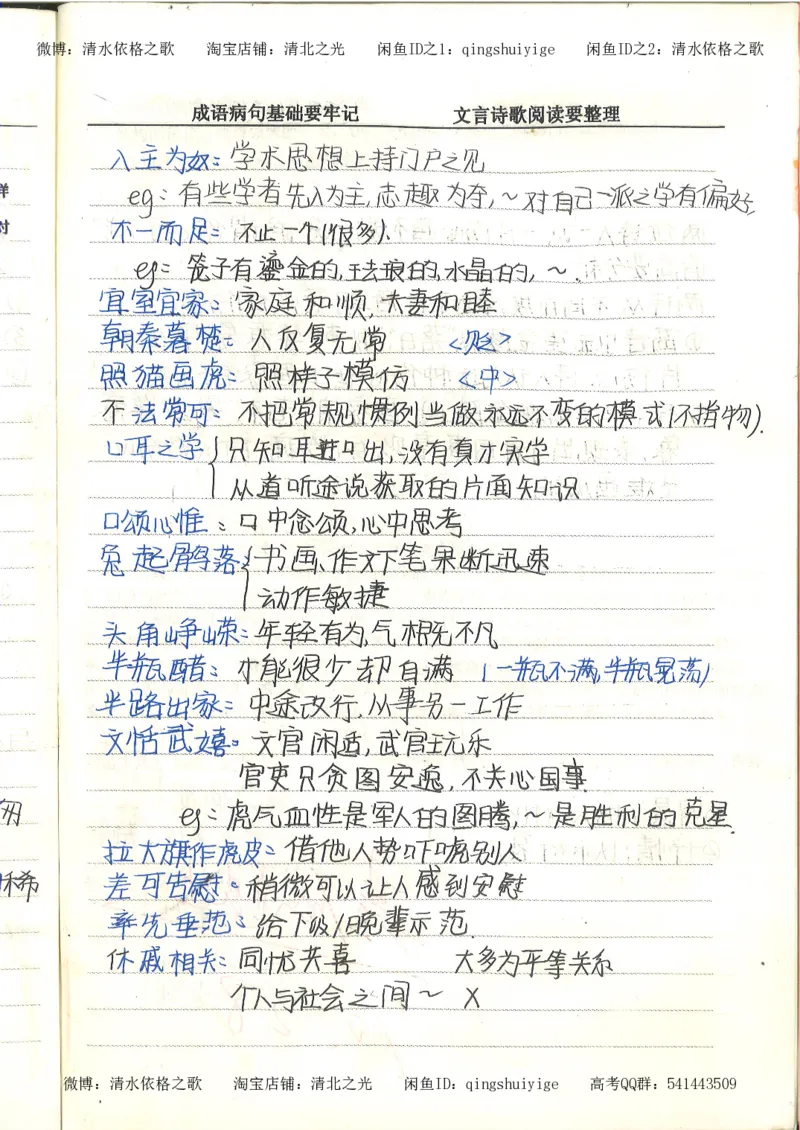 微博：清水依格之歌 淘宝店铺：清北之光 闲鱼ID之1：qingshuiyige 闲鱼ID之2：清水依格之歌
成语病句基础要牢记 文言诗歌阅读要整理
入主为奴：学术思想上持门户之见
eg：有些学者先入为主，志趣为夺，~对自己一派之学有偏好。
不一而足：不止一个(很多)。
eg：笼子有鎏金的，珐琅的，水晶的，~。
宜室宜家：家庭和顺，夫妻和睦
朝秦暮楚：人反复无常 <贬>
照猫画虎：照样子模仿 <中>
不法常可：不把常规惯例当做永远不变的模式(不指物)。
口耳之学{只知耳进口出，没有真才实学
从道听途说获取的片面知识
口颂心惟：口中念颂，心中思考
兔起鹘落{书画、作文下笔果断迅速
动作敏捷
头角峥嵘：年轻有为，气概不凡
半瓶醋：才能很少却自满 (一瓶不满，半瓶晃荡)
半路出家：中途改行，从事另一工作
文恬武嬉：文官闲适，武官玩乐
官吏只贪图安逸，不关心国事
eg：虎气血性是军人的图腾，~是胜利的克星。
拉大旗作虎皮：借他人势吓唬别人
差可告慰：稍微可以让人感到安慰
率先垂范：给下级/晚辈示范
休戚相关：同忧共喜 大多为平等关系
个人与社会之间~ ×
稀
微博：清水依格之歌 淘宝店铺：清北之光 闲鱼ID：qingshuiyige 高考QQ群：541443509